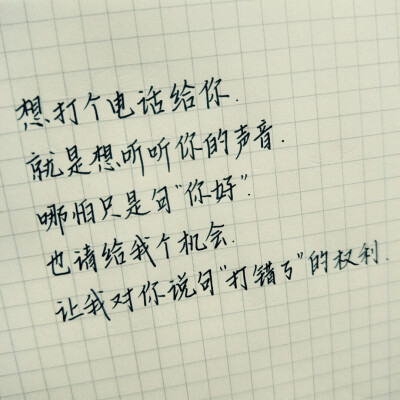 想打个电话给你.
就是想听听你的声音.
哪怕只是句"你好".
也请给我个机会.
让我对你说句"打错了"的权利.